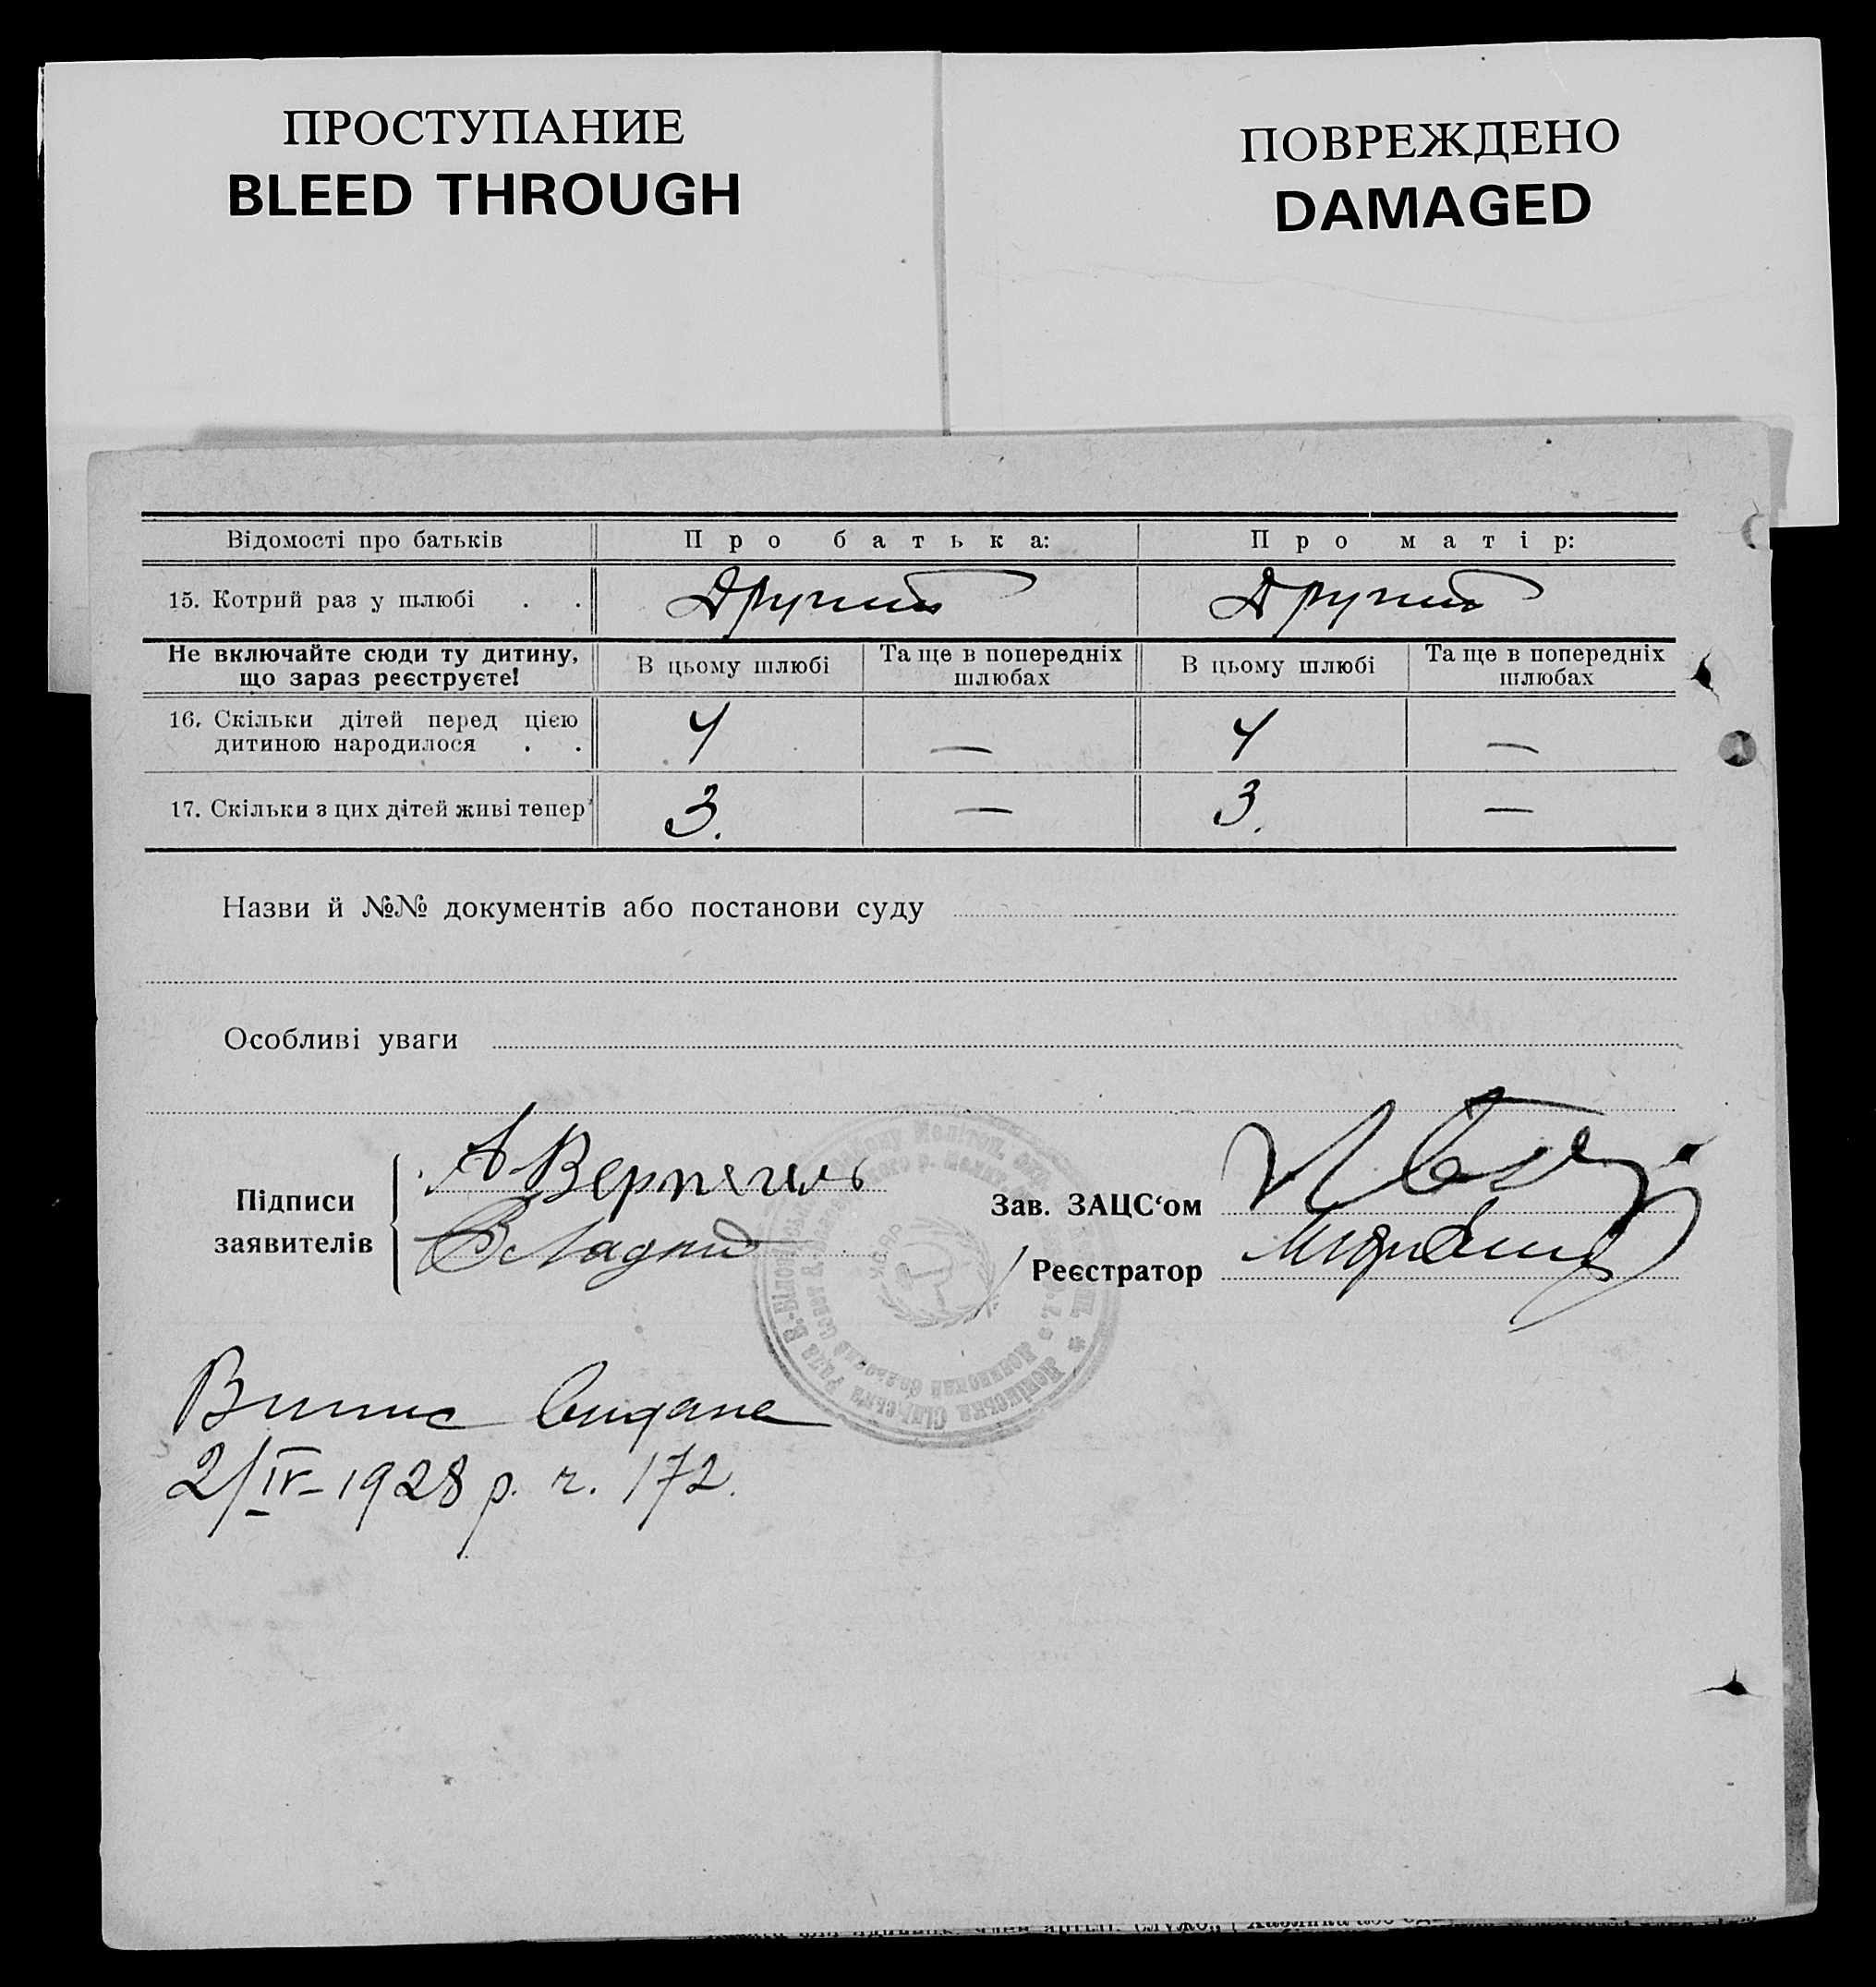 ПРОСТУПАНИЕ
BLEED THROUGH
ПОВРЕЖДЕНО
DAMAGED
Відомості про батьків Про батька: Про матір:
15. Котрий раз у шлюбі . . Другий Другий
Не включайте сюди ту дитину, що зараз реєструєте! В цьому шлюбі Та ще в попередніх шлюбах В цьому шлюбі Та ще в попередніх шлюбах
16. Скільки дітей перед цією
дитиною народилося . . 4 — 4 —
17. Скільки з цих дітей живі тепер 3. — 3. —
Назви й №№ документів або постанови суду
Особливі уваги
Підписи
заявителів
Зав. ЗАЦС‘ом
Реєстратор
Випис видана
2/IV-1928 р. ч. 172.